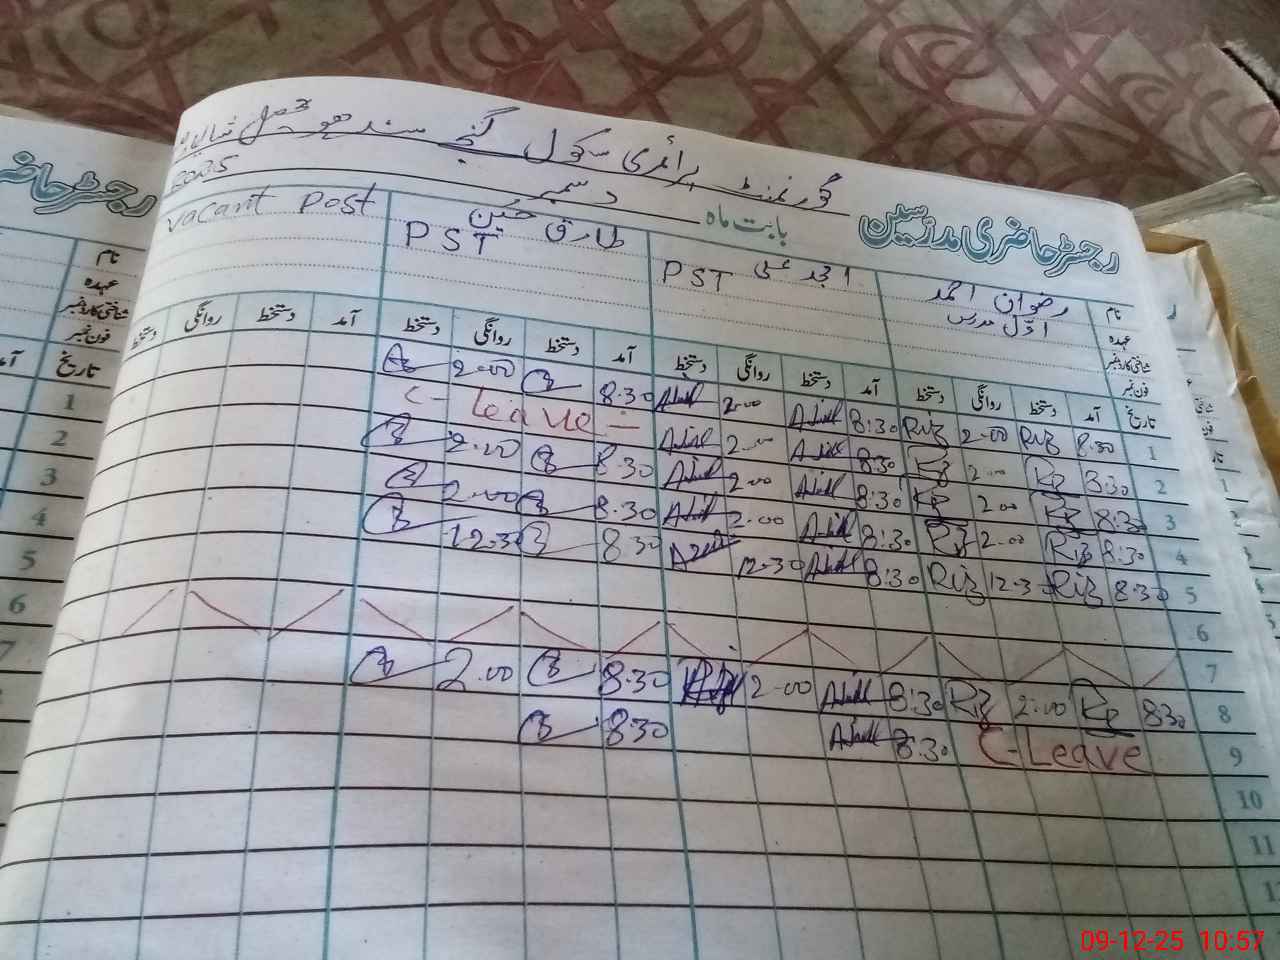 گورنمنٹ پرائمری سکول گنجہ سندھو تحصیل شالیمار
رجسٹر حاضری مدرسین بابت ماہ دسمبر 2025
نام رضوان احمد امجد علی طارق حسین vacant Post
عہدہ اوّل مدرس PST PST
شناختی کارڈ نمبر
فون نمبر
تاریخ آمد دستخط روانگی دستخط آمد دستخط روانگی دستخط آمد دستخط روانگی دستخط آمد دستخط روانگی دستخط
1 8:30 Riz 2:00 Riz 8:30 2:00 8:30 2:00
2 8:30 2:00 8:30 2:00 C-Leave
3 8:30 2:00 8:30 2:00 8:30 2:00
4 8:30 Riz 2:00 8:30 2:00 8:30 2:00
5 8:30 Riz 12:30 Riz 8:30 12:30 8:30 12:30
6
7
8 8:30 2:00 Riz 8:30 2:00 8:30 2:00
9 C-Leave 8:30 8:30
10
11
12
رجسٹر حاضری
نام
عہدہ
شناختی کارڈ نمبر
فون نمبر
تاریخ آمد
1
2
3
4
5
6
7
09-12-25 10:57